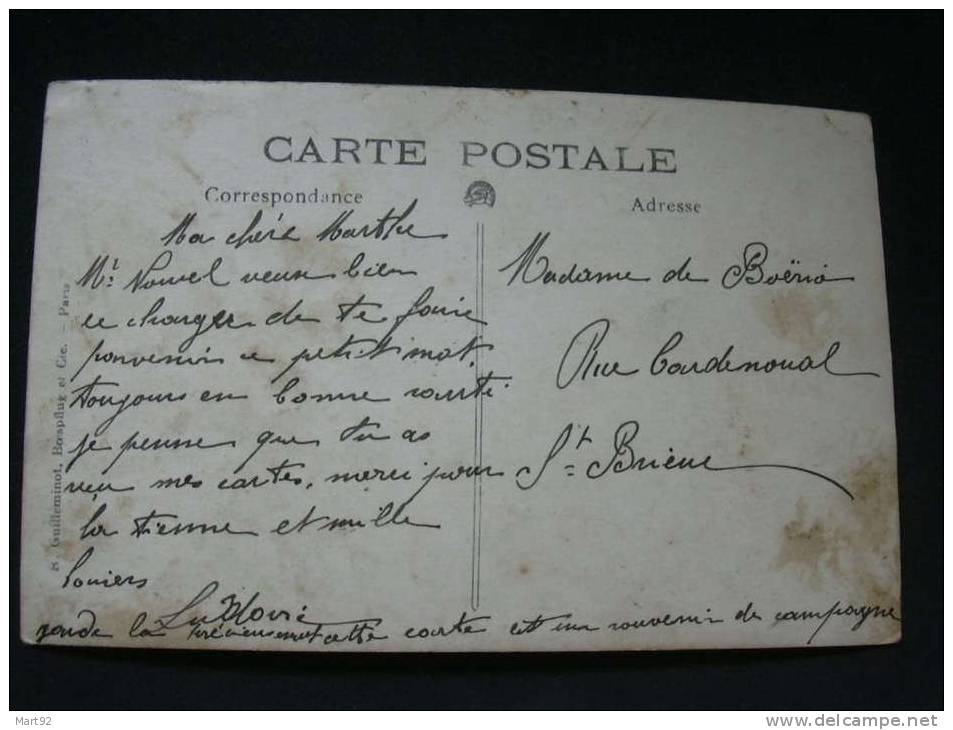 CARTE POSTALE
Correspondance
Adresse
Ma chère Marthe
Mr Nouvel veux bien
ce charger de te faire
parvenir ce petit mot
toujours en bonne santé
je pense que tu as
reçu mes cartes, merci pour
la tienne et mille
baisers
garde la précieusement cette carte est un souvenir de campagne
Madame de Boërio
Rue Cardenoual
St Brieuc
R. Guilleminot, Bœspflug et Cie. — Paris
Mart92
www.delcampe.net